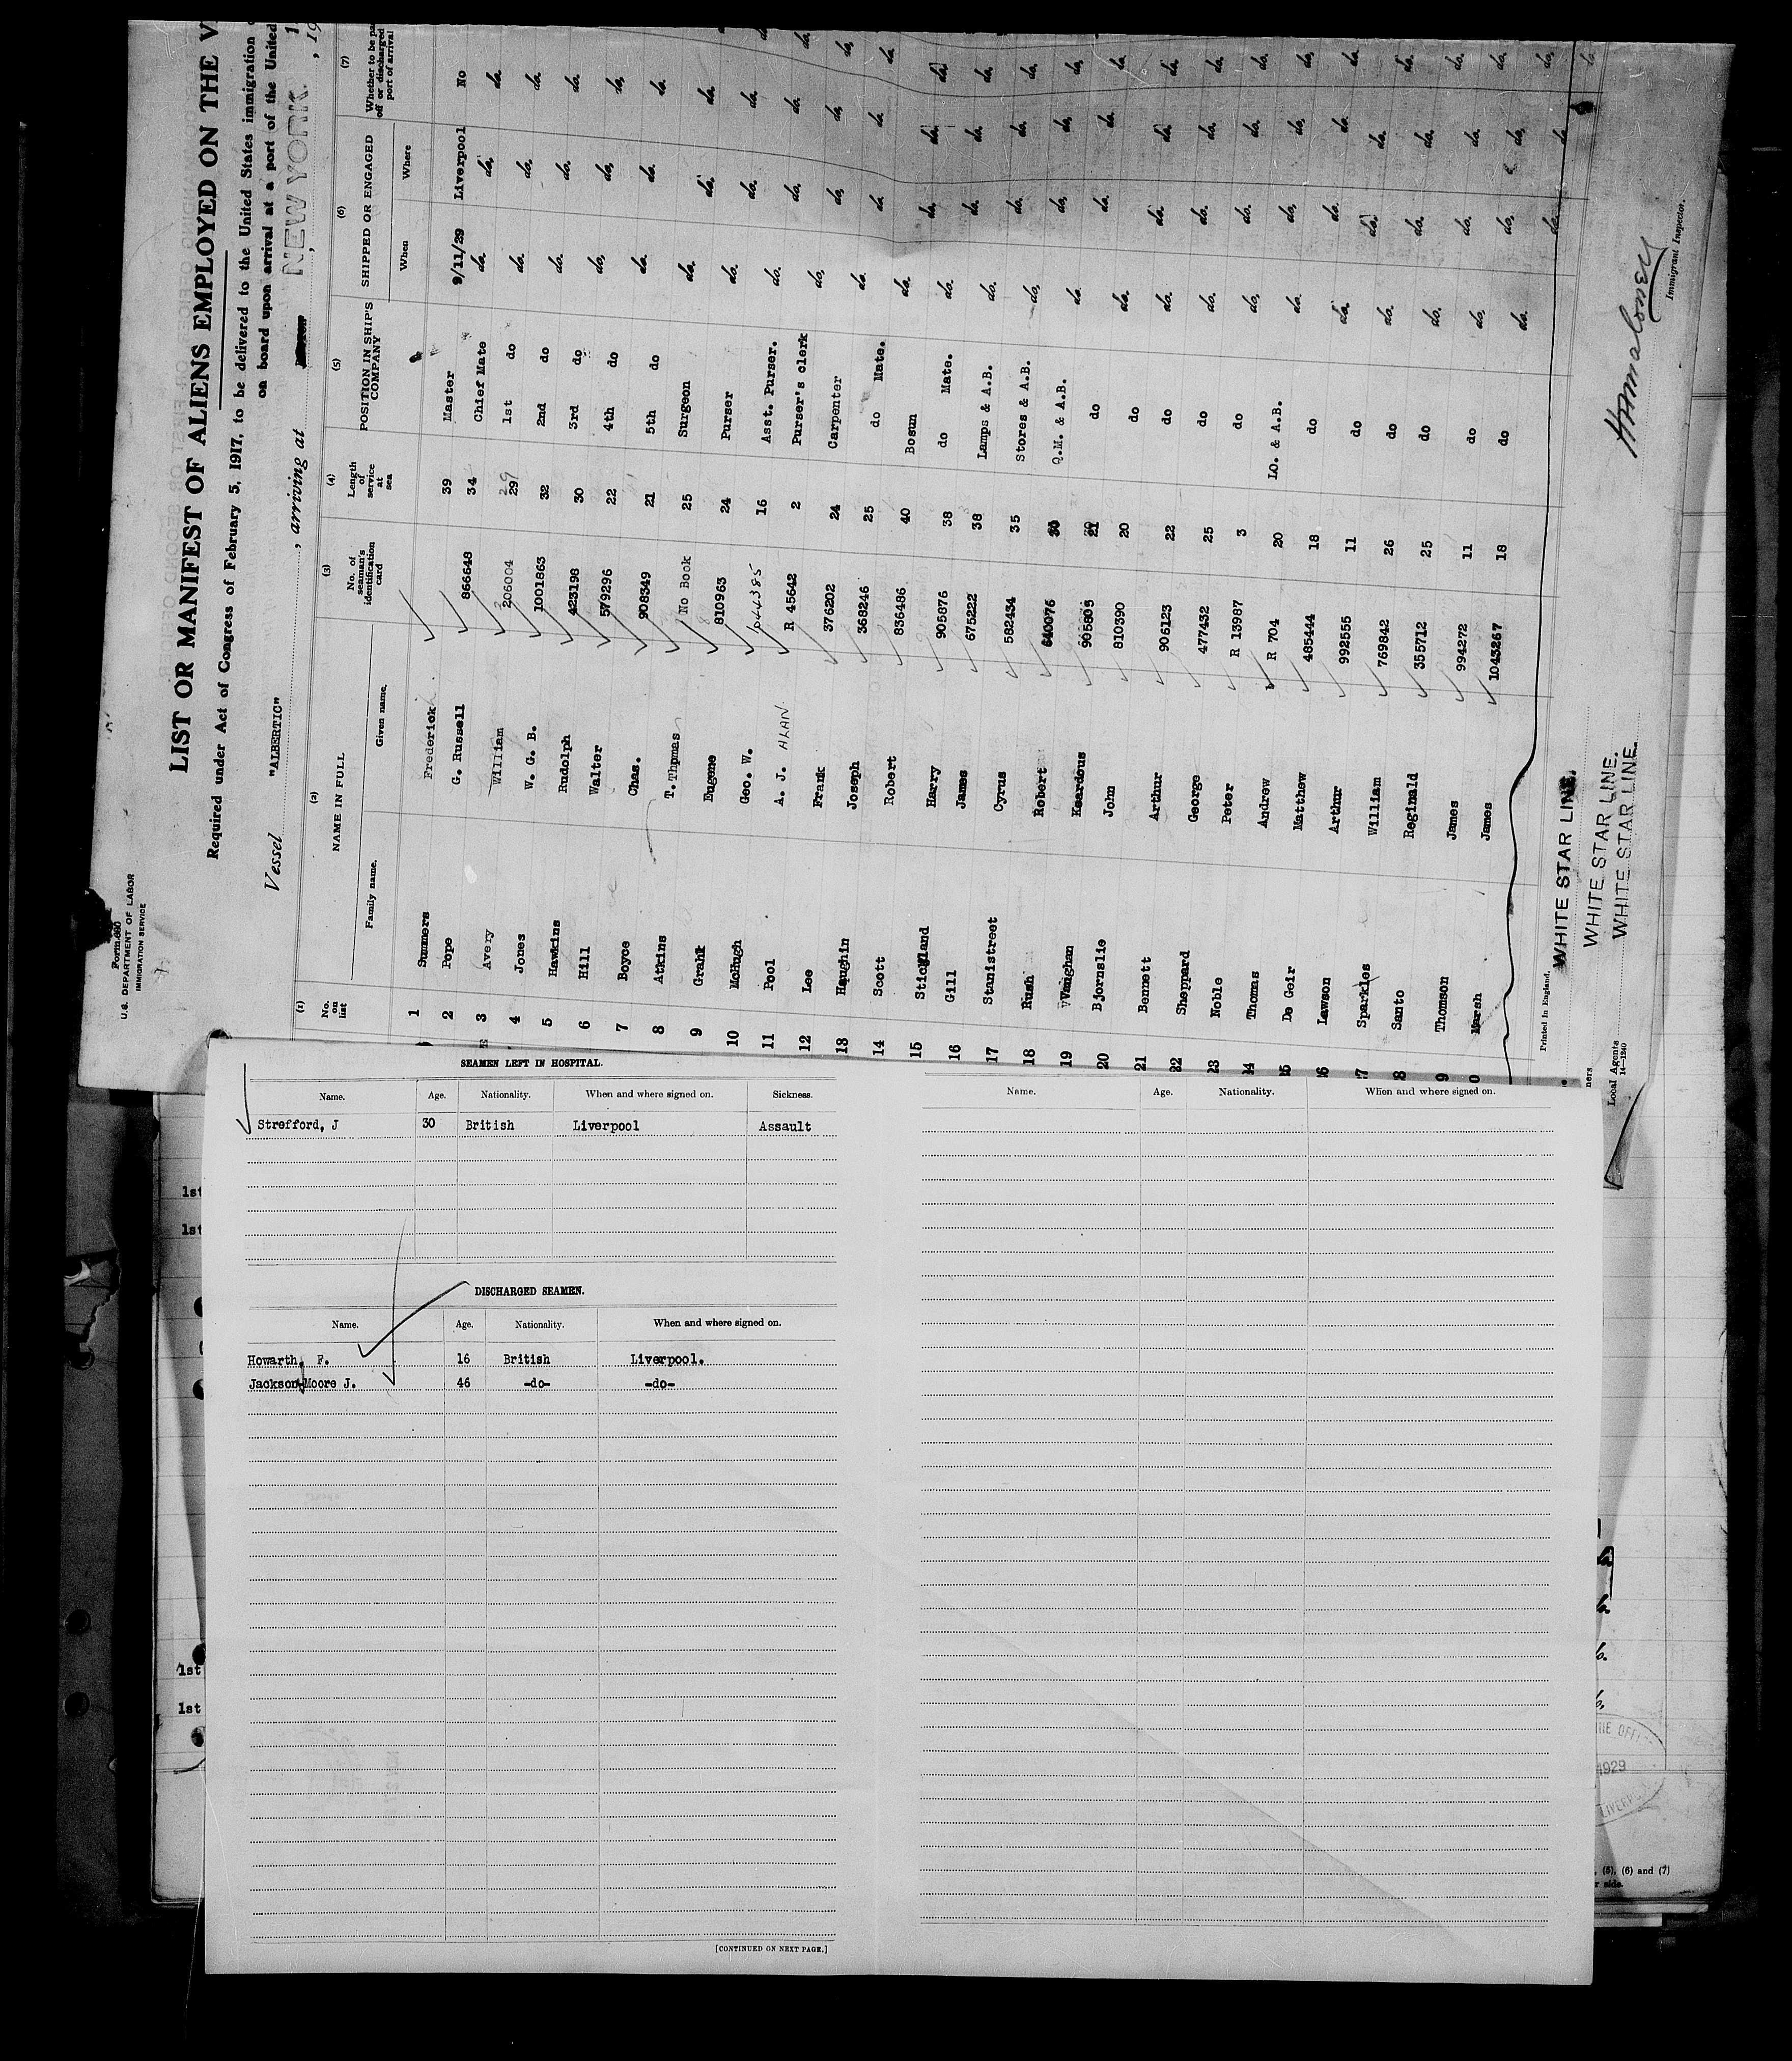 Form 680
U.S. DEPARTMENT OF LABOR
IMMIGRATION SERVICE
LIST OR MANIFEST OF ALIENS EMPLOYED ON THE V
Required under Act of Congress of February 5, 1917, to be delivered to the United States immigration
on board upon arrival at a port of the United
Vessel "ALBERTIC", arriving at NEW YORK. , 19
(1) (2) (3) (4) (5) (6) (7)
No. on list NAME IN FULL No. of seaman's identification card Length of service at sea POSITION IN SHIP'S COMPANY SHIPPED OR ENGAGED Whether to be pa off or discharged port of arrival
Family name. Given name. When Where
1 Summers Frederick 39 Master 9/11/29 Liverpool No
2 Pope G. Russell 866648 34 Chief Mate do. do. do.
3 Avery William 206004 29 1st do do. do. do.
4 Jones W. G. B. 1001863 32 2nd do do. do. do.
5 Hawkins Rudolph 423198 30 3rd do do. do. do.
6 Hill Walter 579296 22 4th do do. do. do.
7 Boyce Chas. 908349 21 5th do do. do. do.
8 Atkins T. Thomas No Book 25 Surgeon do. do. do.
9 Eugene 810963 24 Purser do. do. do.
10 McHugh Geo. W. 644385 16 Asst. Purser. do. do. do.
11 Pool A. J. ALAN R 45642 2 Purser's clerk do. do. do.
12 Lee Frank 376202 24 Carpenter do. do. do.
13 Haughin Joseph 368246 25 do Mate. do. do. do.
14 Scott Robert 836486 40 Bosun do. do. do.
15 Stickland Harry 905876 38 do Mate. do. do. do.
16 Gill James 675222 38 Lamps & A.B. do. do. do.
17 Stanistreet Cyrus 582434 35 Stores & A.B. do. do. do.
18 Rush Robert 640076 30 Q.M. & A.B. do. do. do.
19 Vaughan 905805 21 do do. do. do.
20 Bjornslie John 810390 20 do do. do. do.
21 Bennett Arthur 906123 22 do do. do. do.
22 Sheppard George 477432 25 do do. do. do.
23 Noble Peter R 13987 3 do do. do. do.
24 Thomas Andrew R 704 20 LO. & A.B. do. do. do.
25 De Geir Matthew 485444 18 do do. do. do.
6 Lawson Arthur 992555 11 do do. do. do.
7 Sparkles William 769842 26 do do. do. do.
8 Santo Reginald 355712 25 do do. do. do.
9 Thomson James 994272 11 do do. do. do.
0 Marsh James 1043267 18 do do. do. do.
Printed in England.
WHITE STAR LINE.
ners WHITE STAR LINE.
Local Agents WHITE STAR LINE
14—1240
Immigrant Inspector.
SEAMEN LEFT IN HOSPITAL.
Name. Age. Nationality. When and where signed on. Sickness.
Strefford, J 30 British Liverpool Assault
DISCHARGED SEAMEN.
Name. Age. Nationality. When and where signed on.
Howarth, F. 16 British Liverpool.
Jackson-Moore J. 46 -do- -do-
[CONTINUED ON NEXT PAGE.]
Name. Age. Nationality. When and where signed on.
1st
1st
1st
1st
1929
LIVERP
, (5), (6) and (7)
r side.